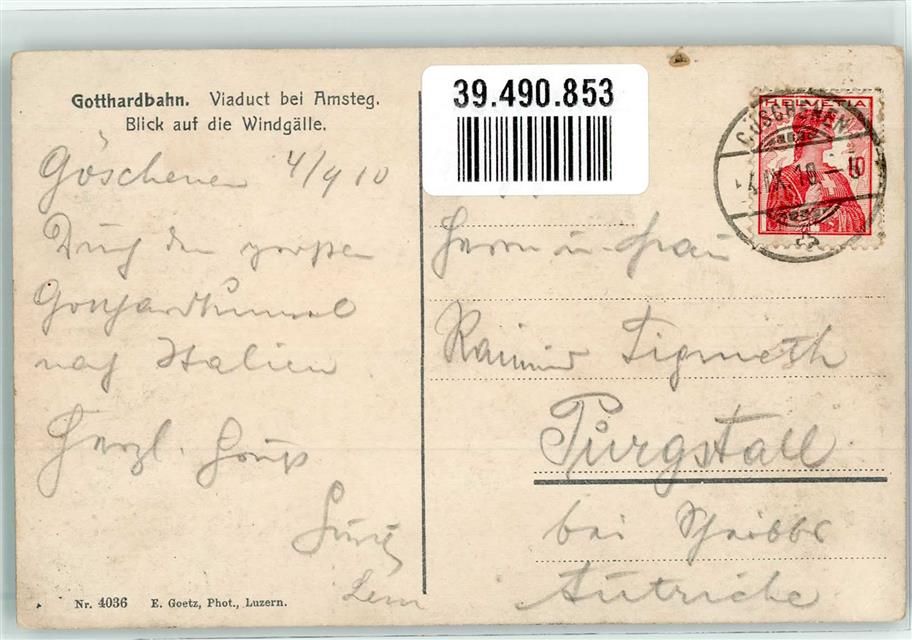 Gotthardbahn. Viaduct bei Amsteg.
Blick auf die Windgälle.
Göschenen 4/9 10
Durch den großen
Gotthardtunnel
nach Italien
Herzl. Gruß
Nr. 4036 E. Goetz, Phot., Luzern.
39.490.853
HELVETIA
GÖSCHENEN
IX. 10
Herrn u Frau
Purgstall
bei Scheibbs
Autriche